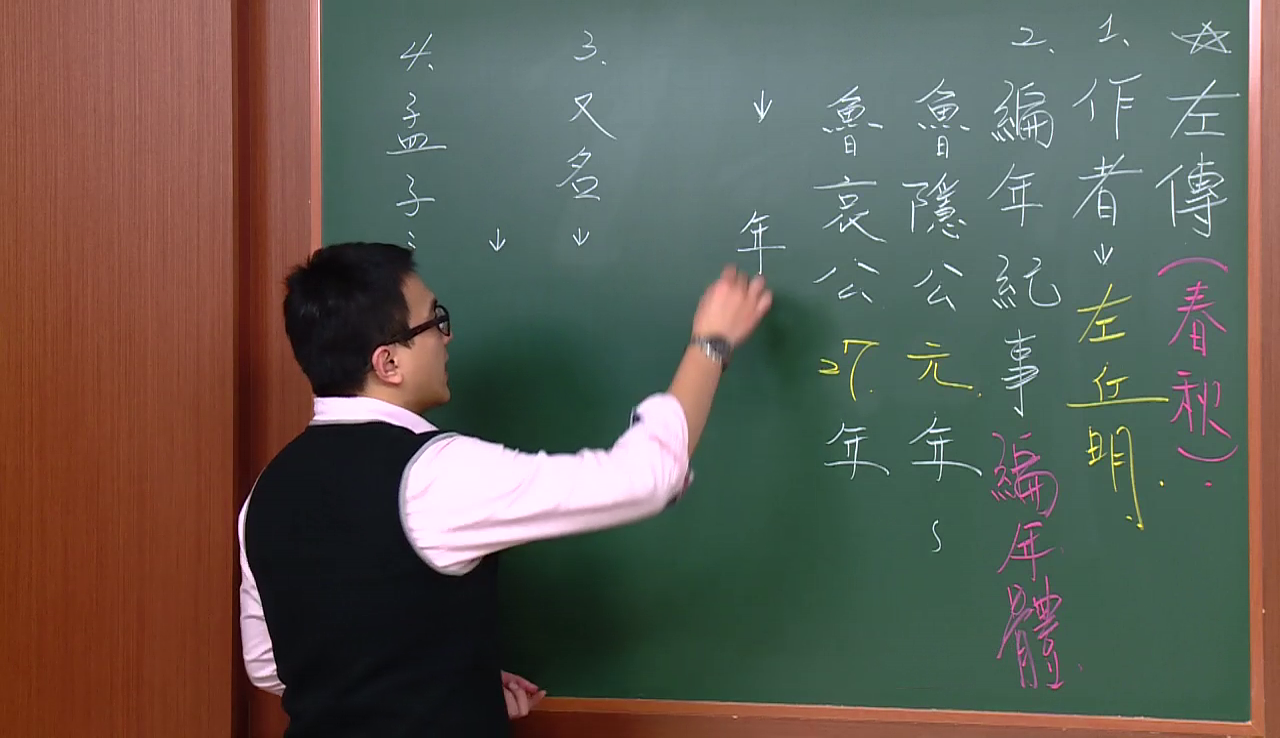 ☆左傳(春秋)
1、作者↓左丘明
2、編年紀事編年體
魯隱公元年~
魯哀公27年
↓ 年
3、又名↓
↓
4、孟子: